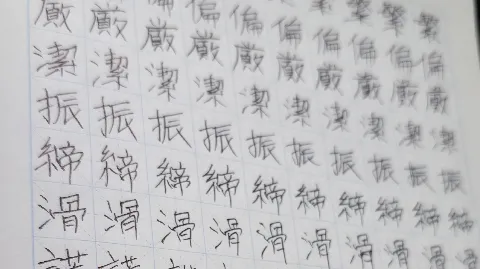 繁繁繁
偏偏偏偏偏偏偏
厳厳厳厳厳厳厳厳厳厳
潔潔潔潔潔潔潔潔潔潔
振振振振振振振振振振
締締締締締締締締締締
滑滑滑滑滑滑滑滑滑滑